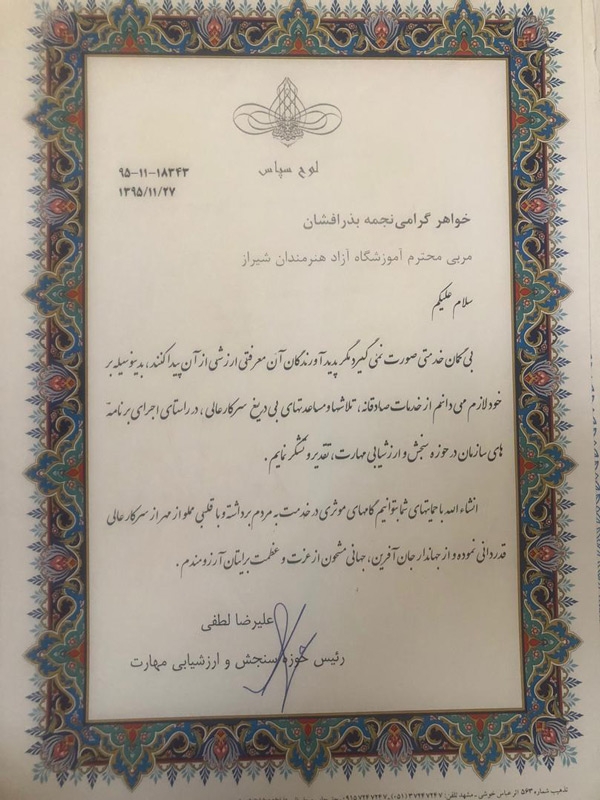 لوح سپاس
۹۵-۱۱-۱۸۳۴۳
۱۳۹۵/۱۱/۲۷
خواهر گرامی نجمه بذرافشان
مربی محترم آموزشگاه آزاد هنرمندان شیراز
سلام علیکم
بی گمان خدمتی صورت نمی گیرد مگر پدید آورندگان آن معرفتی ارزشی از آن پیدا کنند، بدینوسیله بر
خود لازم می دانم از خدمات صادقانه، تلاشها و مساعدتهای بی دریغ سرکار عالی، در راستای اجرای برنامه
های سازمان در حوزه سنجش و ارزشیابی مهارت، تقدیر و تشکر نمایم.
انشاء الله با حمایتهای شما بتوانیم گامهای موثری در خدمت به مردم برداشته و با قلبی مملو از مهر از سرکار عالی
قدردانی نموده و از جهاندار جان آفرین، جهانی مشحون از عزت و عظمت برایتان آرزومندم.
علیرضا لطفی
رئیس حوزه سنجش و ارزشیابی مهارت
تذهیب شماره ۵۶۳ اثر عباس خوشی - مشهد تلفن: ۳۷۲۴۷۲۴۷ (۰۵۱)